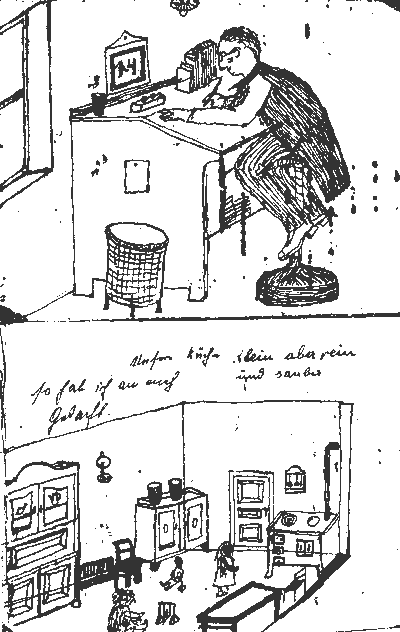 14
Unsere Küche klein aber rein
und sauber
so hab ich an euch
gedacht